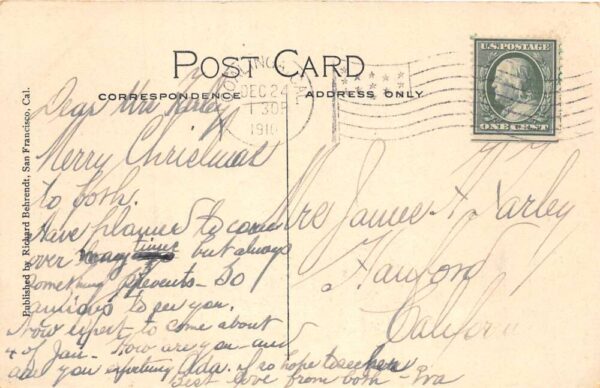 POST CARD
CORRESPONDENCE
ADDRESS ONLY
COALINGA, CAL.
DEC 24
1 30 P
1910
U.S. POSTAGE
ONE CENT
Published by Richard Behrendt, San Francisco, Cal.
Dear Mrs
Merry Christmas
to both.
Have planned to come
over many times but always
something prevents - So
anxious to see you.
Now expect to come about
4 of Jan - How are you - and
are you expecting Ada. if so hope to see her
Best love from both - Eva
Mrs James
Hanford
California